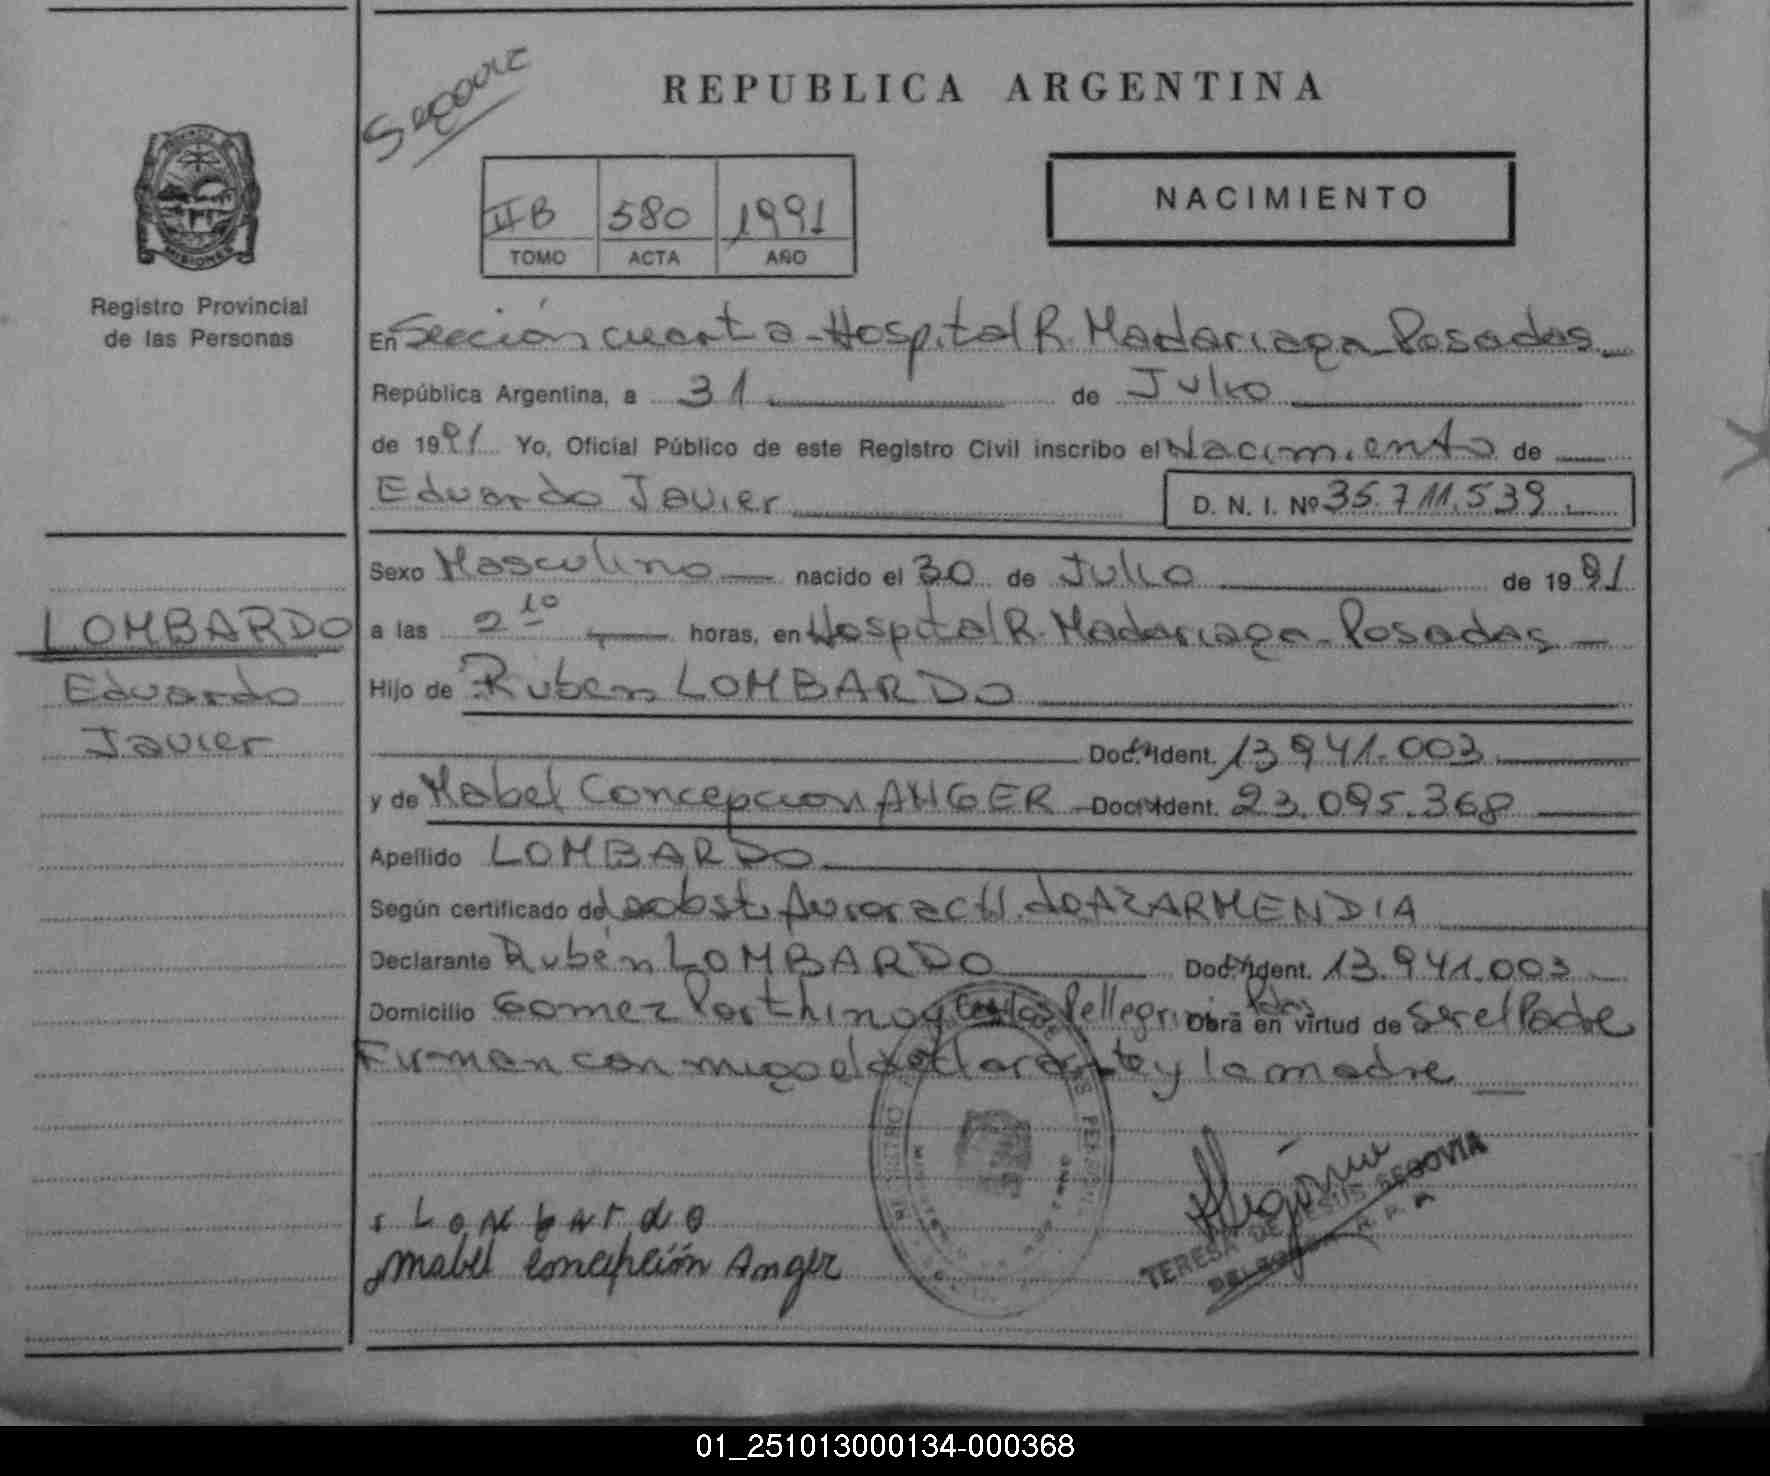 Segovia
REPUBLICA ARGENTINA
NACIMIENTO
IIB 580 1991
TOMO ACTA AÑO
PROVINCIA DE MISIONES
Registro Provincial
de las Personas
En Sección cuarta - Hospital R. Madariaga - Posadas
República Argentina, a 31 de Julio
de 1991 Yo, Oficial Público de este Registro Civil inscribo el Nacimiento de
Eduardo Javier D. N. I. Nº 35.711.539
LOMBARDO
Eduardo
Javier
Sexo Masculino nacido el 30 de Julio de 1991
a las 2 10 horas, en Hospital R. Madariaga - Posadas
Hijo de Ruben LOMBARDO
Doc. Ident. 13.941.003
y de Mabel Concepcion ANGER Doc. Ident. 23.095.368
Apellido LOMBARDO
Según certificado de la obst. Aurora de AZARMENDIA
Declarante Rubén LOMBARDO Doc. Ident. 13.941.003
Domicilio Gomez Porthino y Carlos Pellegrini Pdas Obra en virtud de ser el Padre
Firman conmigo el declarante y la madre
Lombardo
Mabel Concepción Anger
TERESA DE JESUS SEGOVIA
01_251013000134-000368